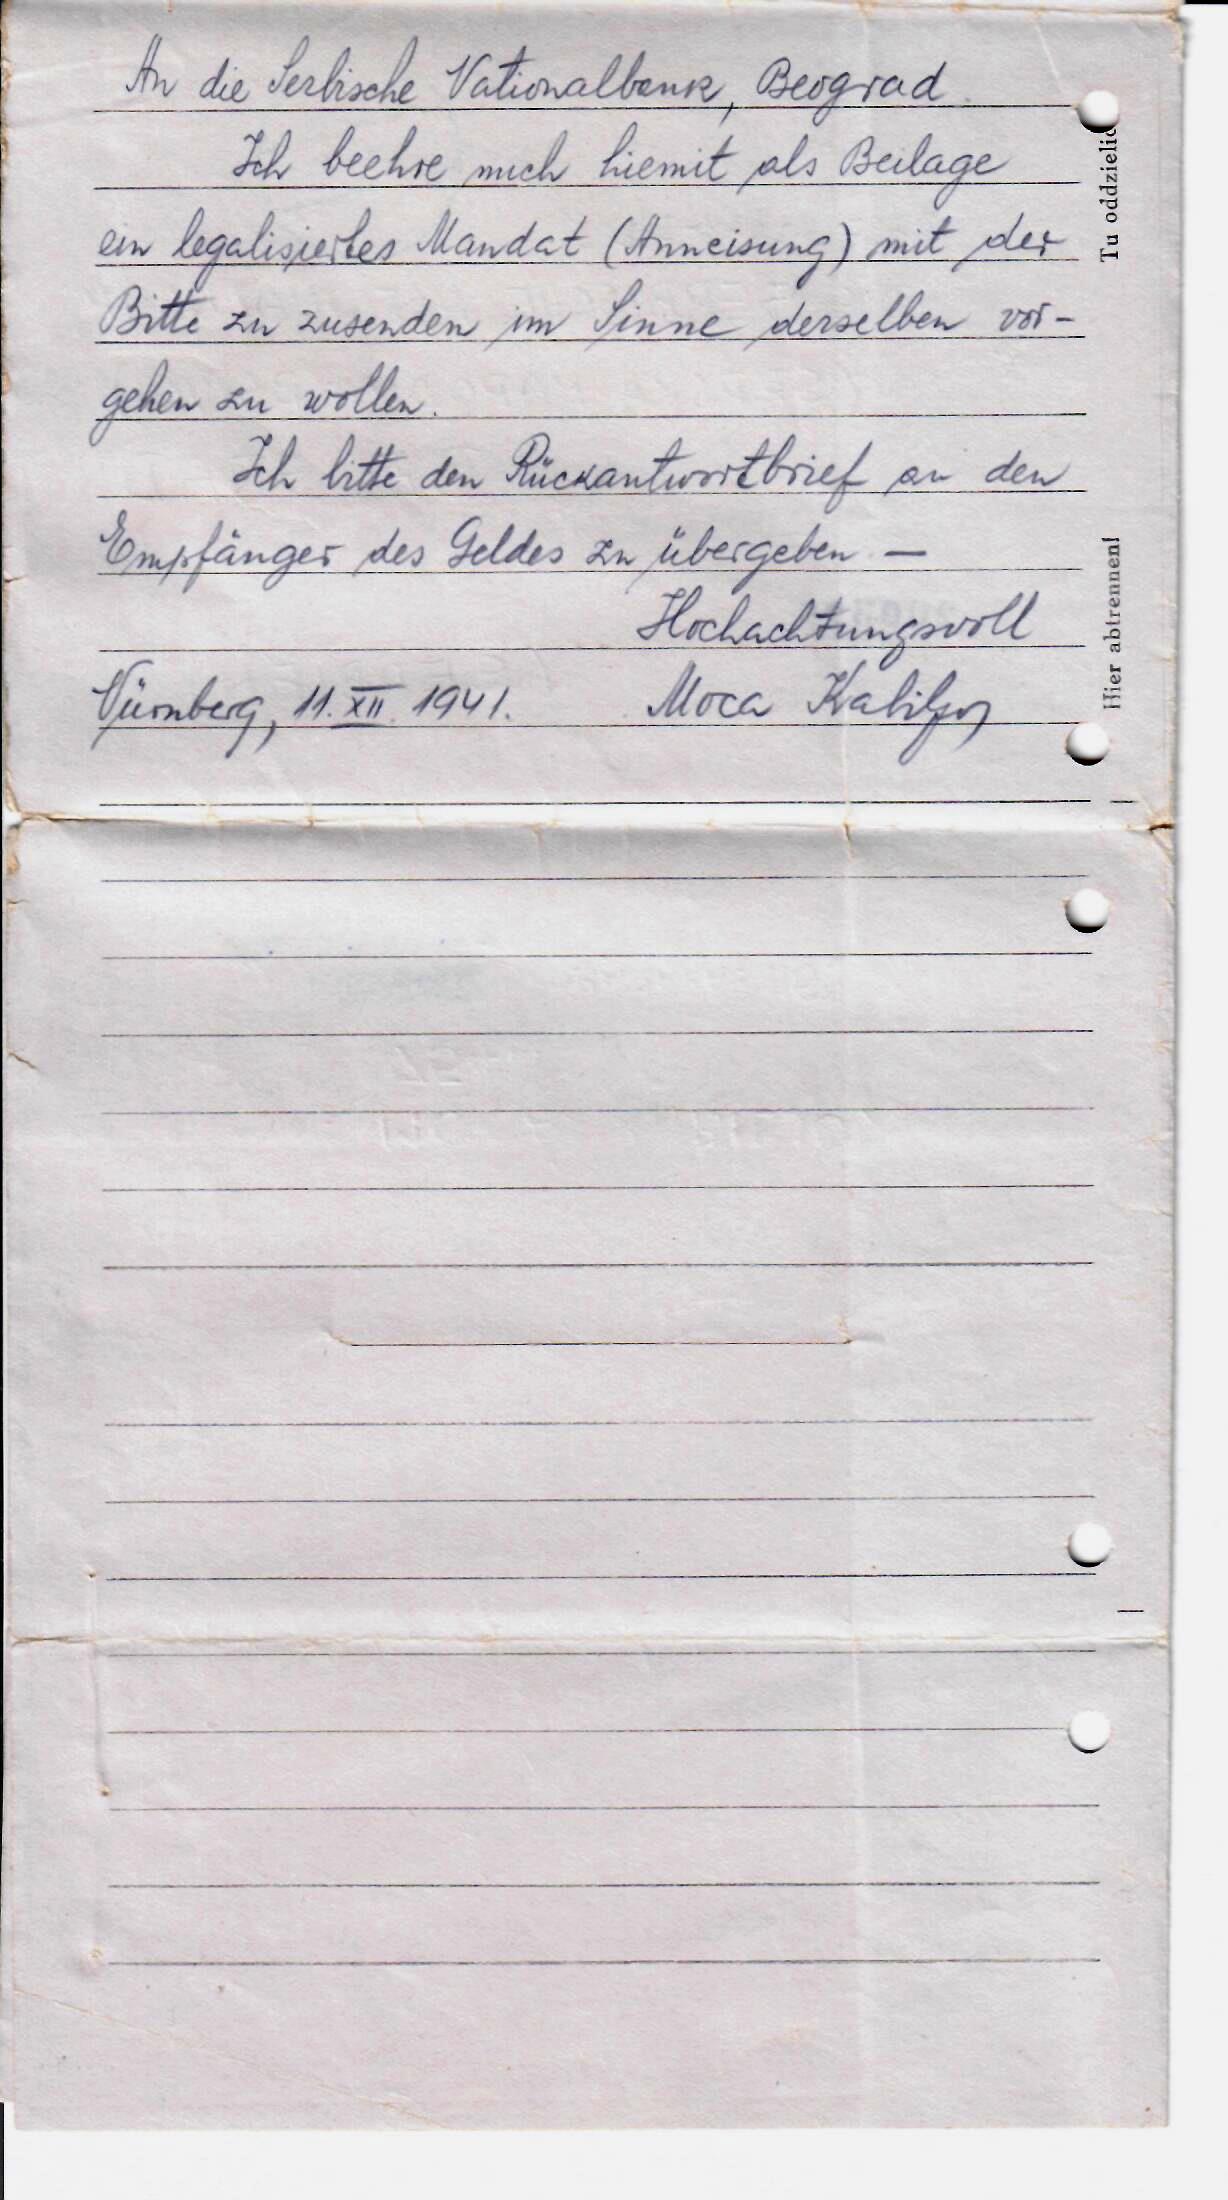 An die Serbische Nationalbank, Beograd.
Ich beehre mich hiemit als Beilage
ein legalisiertes Mandat (Anweisung) mit der
Bitte zu zusenden im Sinne derselben vor-
gehen zu wollen.
Ich bitte den Rückantwortbrief an den
Empfänger des Geldes zu übergeben —
Hochachtungsvoll
Nürnberg, 11. XII 1941. Moca
Tu oddzielić
Hier abtrennen!